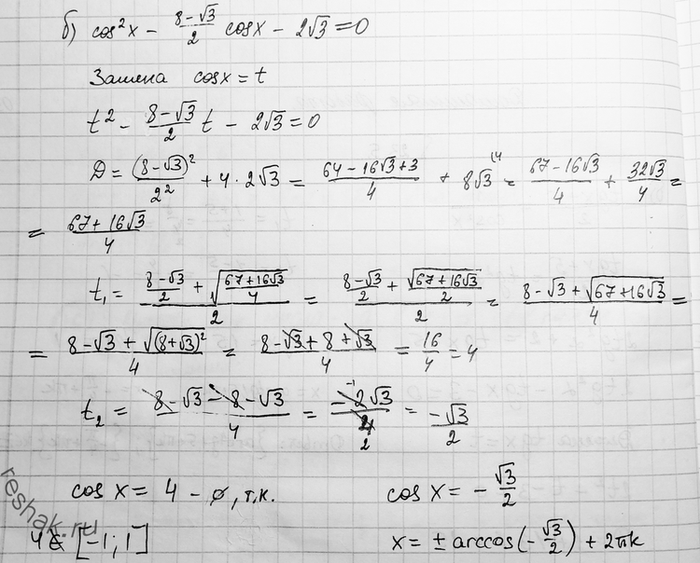 б) cos²x − (8−√3)/2 cosx − 2√3 = 0
Замена cosx = t
t² − (8−√3)/2 t − 2√3 = 0
D = (8−√3)²/2² + 4·2√3 = (64−16√3+3)/4 + 8√3 ^(4 = (67−16√3)/4 + 32√3/4 =
= (67+16√3)/4
t₁ = ((8−√3)/2 + √((67+16√3)/4))/2 = ((8−√3)/2 + √(67+16√3)/2)/2 = (8−√3+√(67+16√3))/4 =
= (8−√3+√((8+√3)²))/4 = (8−√3+8+√3)/4 = 16/4 = 4
t₂ = (8−√3−8−√3)/4 = −2√3/4 = −√3/2
cos x = 4 − ∅, т.к.
4 ∉ [−1; 1]
cos x = −√3/2
x = ± arccos(−√3/2) + 2πk
reshak.ru